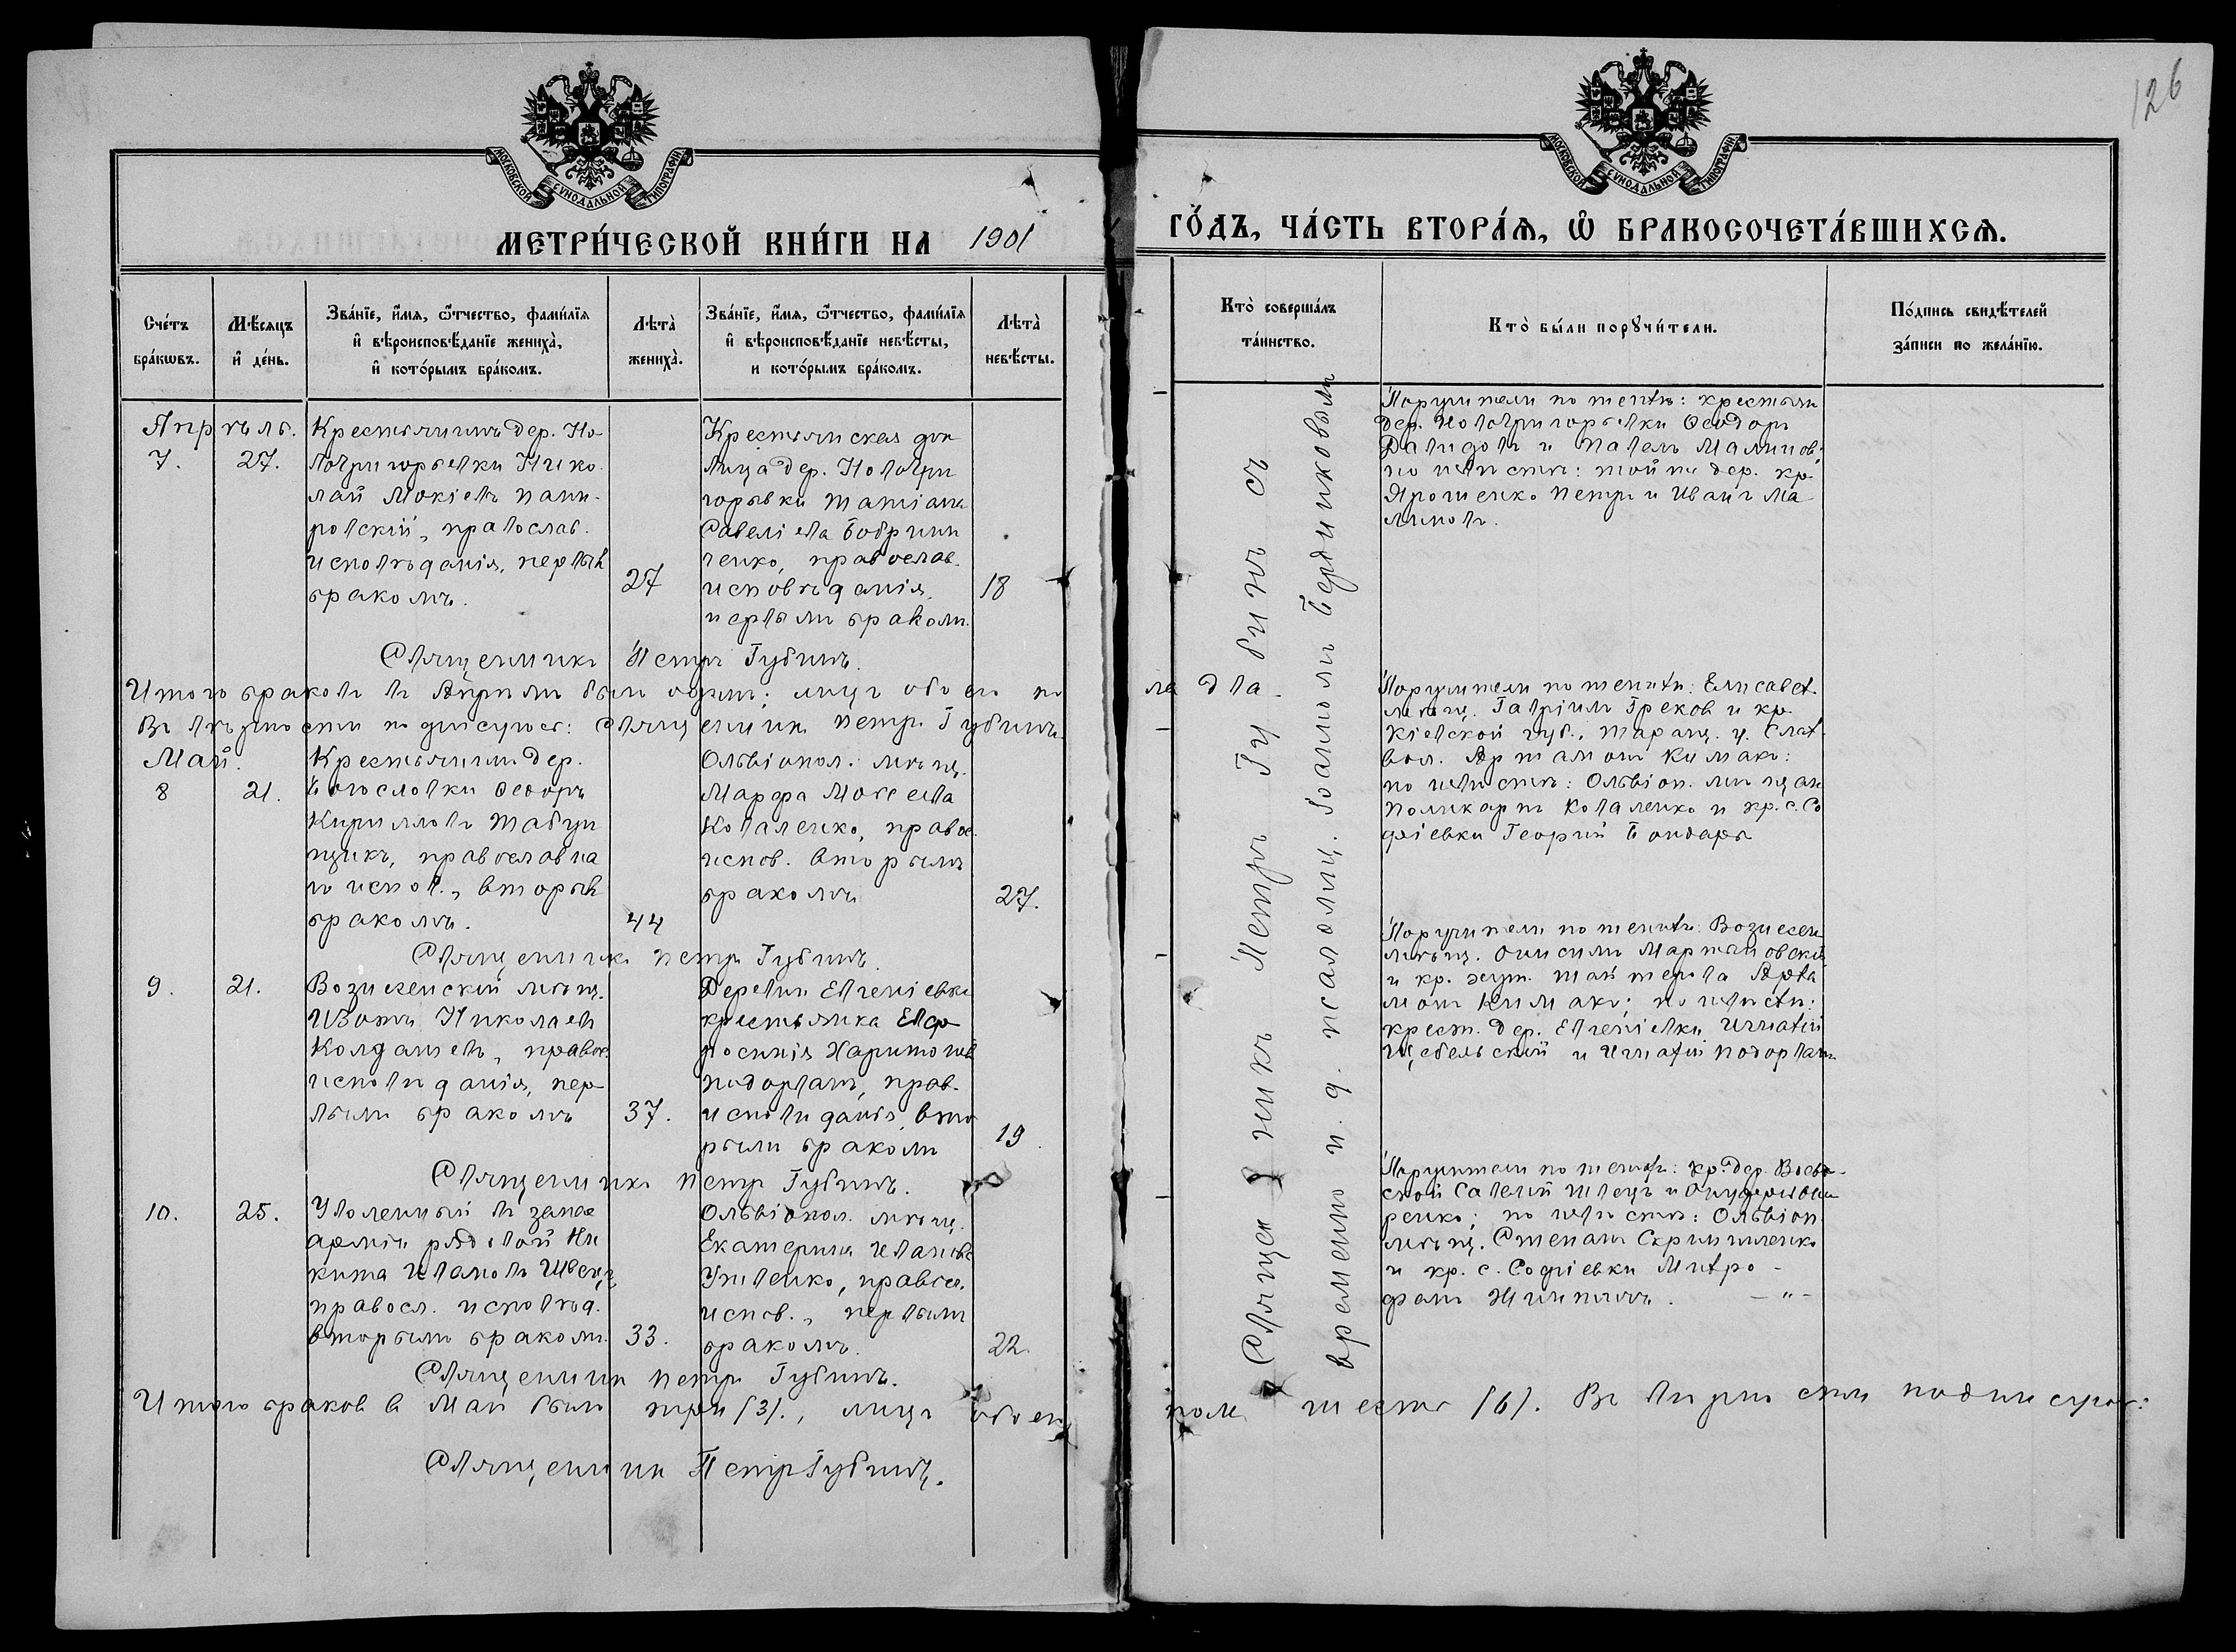 126
МОСКОВСКОЙ СѴНОДАЛЬНОЙ ТИПОГРАФІИ
МОСКОВСКОЙ СѴНОДАЛЬНОЙ ТИПОГРАФІИ
МЕТРИ́ЧЕСКОЙ КНИ́ГИ НА 1901
ГО́ДЪ, ЧА́СТЬ ВТОРА́Ѧ, Ѡ҆ БРАКОСОЧЕТА́ВШИХСѦ.
Сче́тъ
бра́кѡвъ.
Мѣ́сяцъ
и҆ де́нь.
Зва́нїе, и҆́мѧ, ѻ҆́тчество, фами́лїѧ
и҆ вѣроисповѣ́данїе жениха̀,
и҆ кото́рымъ бра́комъ.
Лѣта̀
жениха̀.
Зва́нїе, и҆́мѧ, ѻ҆́тчество, фами́лїѧ
и҆ вѣроисповѣ́данїе невѣ́сты,
и кото́рымъ бра́комъ.
Лѣта̀
невѣ́сты.
Кто̀ соверша́лъ
та́инство.
Кто̀ бы́ли порꙋчи́тели.
По́дпись свидѣ́телей
за́писи по жела́нїю.
Апрѣль.
7.
27.
Крестьянинъ дер. Но-
вогригорьевки Нико-
лай Мокіевъ
православ.
исповѣданія, первый
бракомъ.
27
Крестьянская дѣ
вица дер. Новогри
горьевки Татіана
Савеліева Бобрин
ченко, православ.
исповѣданія,
первымъ бракомъ.
18
Поручители по женихѣ: крестьяни
дер. Новогригорьевки Ѳеодоръ
Давидовъ и Павелъ Малинов:
по невѣстѣ: той же дер. кр
Ярошенко Петръ и Иванъ Ма
линовъ.
Священникъ Петръ Губинъ.
Итого браковъ въ Апрѣлѣ былъ одинъ; лицъ обоего по
ла два.
Въ вѣрности подписуюсь: Священникъ Петръ Губинъ.
Май.
8
21.
Крестьянинъ дер.
Богословки Ѳедоръ
Кирилловъ Табун
щикъ, православна
го испов., вторый
бракомъ.
44
Ольвіопол. мѣщ.
Марфа Моѵсеева
Коваленко, правос.
испов. вторымъ
бракомъ
27.
Поручители по женихѣ: Елисавет.
мѣщ. Гавріилъ Грековъ и кр.
Кіевской губ., Таращ. у. Слав.
вол. Артамонъ Кимакъ:
по невѣстѣ: Ольвіоп. мѣщан
Поликарпъ Коваленко и кр. с. Со
фіевки Георгій Бондарь
Священникъ Петръ Губинъ.
9.
21.
Вознесенскій мѣщ.
Изотъ Николаевъ
правос.
исповѣданія, пер
вымъ бракомъ
37.
Деревни Евгеніевки
крестьянка Евф
росинія Харитонов
Подорванъ, прав.
исповѣданія, вто
рымъ бракомъ
19.
Поручители по женихѣ: Вознесен
мѣщ. Онисимъ Мартановскій
и кр. хут. Артa
монъ Кимакъ; по невѣстѣ:
крест. дер. Евгеніевки Игнатій
Щебельскій и Игнатій Подорванъ
Священникъ Петръ Губинъ.
10.
25.
Уволенный въ запас
арміи рядовой Ни
кита Ивановъ Швецъ,
правосл. исповѣд.
вторымъ бракомъ.
33.
Ольвіопол. мѣщ.
Екатерина Иванов
правосл.
испов., первымъ
бракомъ.
22.
Поручители по женихѣ: кр. дер.
Савелій Швецъ и
ренко; по невѣстѣ: Ольвіоп.
мѣщ. Степанъ
и кр. с. Софіевки Митро-
фанъ — " —
Священникъ Петръ Губинъ.
Итого браковъ въ Маѣ было три (3)., лицъ обоего
пола шесть (6). Въ вѣрности подписуюсь:
Священникъ Петръ Губинъ.
Священникъ Петръ Губинъ съ
временно и. д. псаломщ. Іоанномъ Бердниковымъ